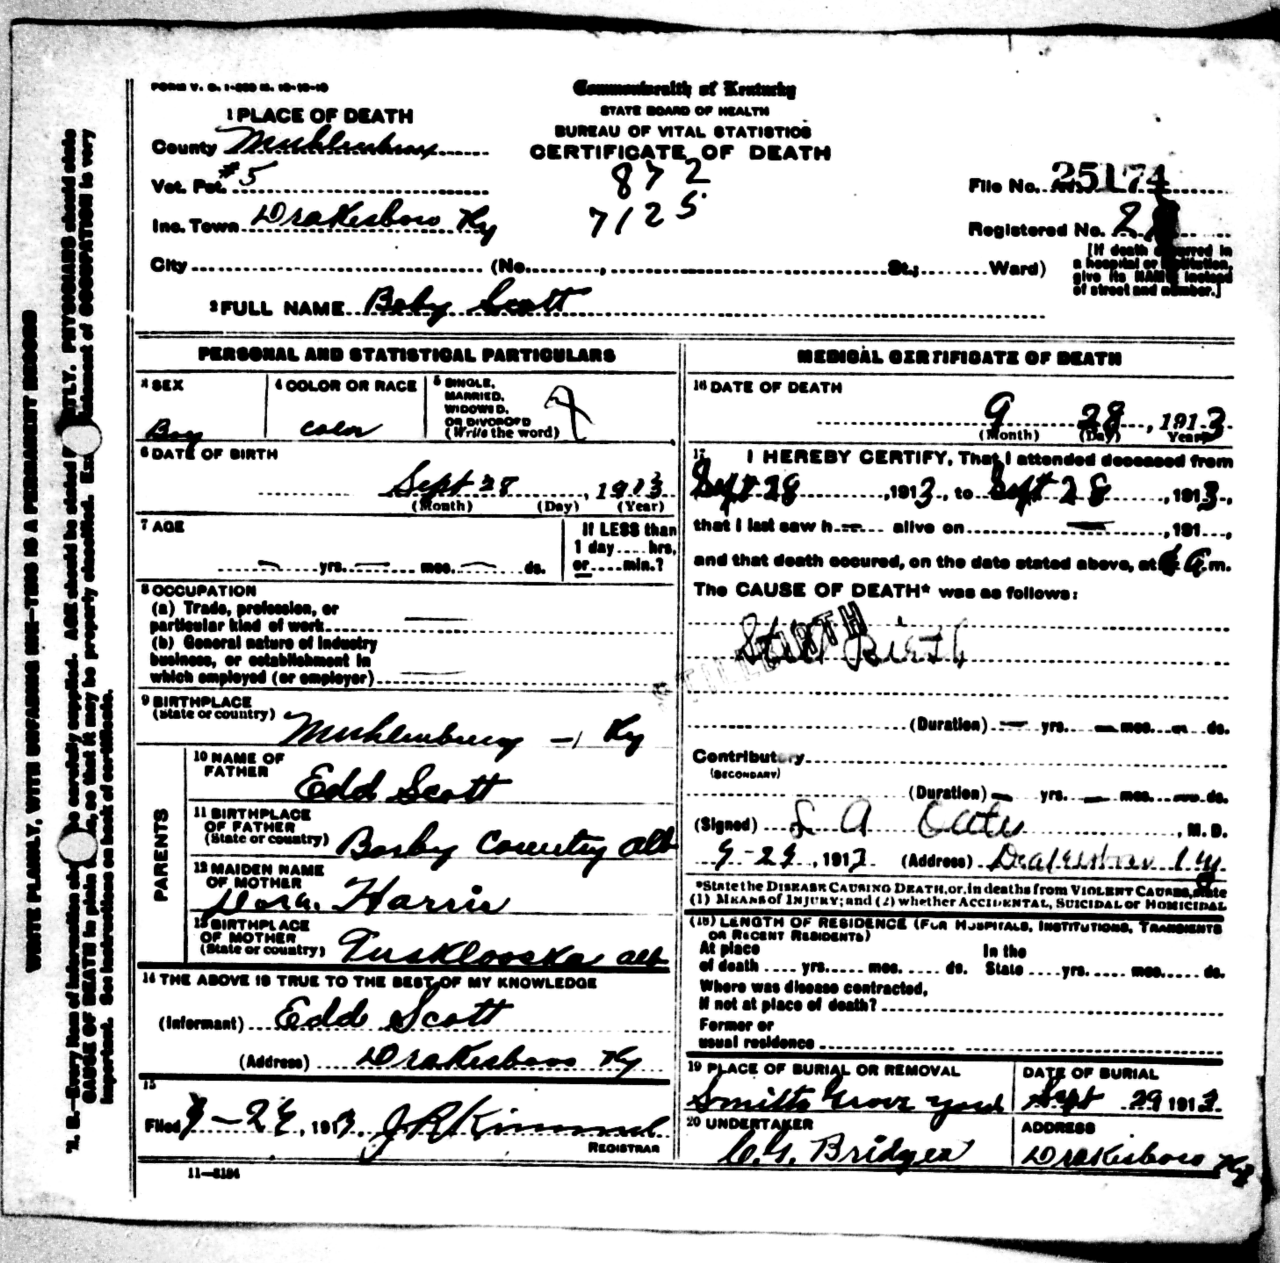 FORM V. S. 1-
Commonwealth of Kentucky
STATE BOARD OF HEALTH
BUREAU OF VITAL STATISTICS
CERTIFICATE OF DEATH
1 PLACE OF DEATH
County Muhlenburg
Vot. Pct. #5
Inc. Town Drakesboro Ky
872
7125
File No. 25174
Registered No.
City (No. , St.; Ward)
[If death occurred in
a hospital or institution,
give its NAME instead
of street and number.]
2 FULL NAME Baby Scott
PERSONAL AND STATISTICAL PARTICULARS
3 SEX
Boy
4 COLOR OR RACE
Color
5 SINGLE,
MARRIED,
WIDOWED,
OR DIVORCED
(Write the word)
6 DATE OF BIRTH
Sept 28, 1913
(Month) (Day) (Year)
7 AGE
yrs. mos. ds.
If LESS than
1 day hrs,
or min.?
8 OCCUPATION
(a) Trade, profession, or
particular kind of work
(b) General nature of industry
business, or establishment in
which employed (or employer)
9 BIRTHPLACE
(State or country)
Muhlenburg - Ky
PARENTS
10 NAME OF
FATHER
Edd Scott
11 BIRTHPLACE
OF FATHER
(State or country)
County Alb
12 MAIDEN NAME
OF MOTHER
Dora Harris
13 BIRTHPLACE
OF MOTHER
(State or country)
Tusklooska Alb
14 THE ABOVE IS TRUE TO THE BEST OF MY KNOWLEDGE
(Informant) Edd Scott
(Address) Drakesboro Ky
15
Filed 9-29, 1913 J R Kimmel
REGISTRAR
11-3184
MEDICAL CERTIFICATE OF DEATH
16 DATE OF DEATH
9 28, 1913
(Month) (Day) Year
17 I HEREBY CERTIFY, That I attended deceased from
Sept 28, 1913, to Sept 28, 1913,
that I last saw h alive on , 191 ,
and that death occured, on the date stated above, at m.
The CAUSE OF DEATH* was as follows:
Still Birth
STILLBIRTH
(Duration) yrs. mos. ds.
Contributory
(SECONDARY)
(Duration) yrs. mos. ds.
(Signed) L A Oates, M. D.
9-29, 1913 (Address) Drakesboro Ky
*State the DISEASE CAUSING DEATH, or, in deaths from VIOLENT CAUSES, state
(1) MEANS of INJURY; and (2) whether ACCIDENTAL, SUICIDAL or HOMICIDAL
(18) LENGTH OF RESIDENCE (FOR HOSPITALS, INSTITUTIONS, TRANSIENTS
OR RECENT RESIDENTS)
At place In the
of death yrs. mos. ds. State yrs. mos. ds.
Where was disease contracted,
If not at place of death?
Former or
usual residence
19 PLACE OF BURIAL OR REMOVAL
Smiths Grove yard
DATE OF BURIAL
Sept 29 1913
20 UNDERTAKER
C. G. Bridges
ADDRESS
Drakesboro Ky
WRITE PLAINLY, WITH UNFADING INK—THIS IS A PERMANENT RECORD
N. B.—Every item of information should be carefully supplied. AGE should be stated EXACTLY. PHYSICIANS should state
CAUSE OF DEATH in plain terms, so that it may be properly classified. Exact statement of OCCUPATION is very
important. See instructions on back of certificate.